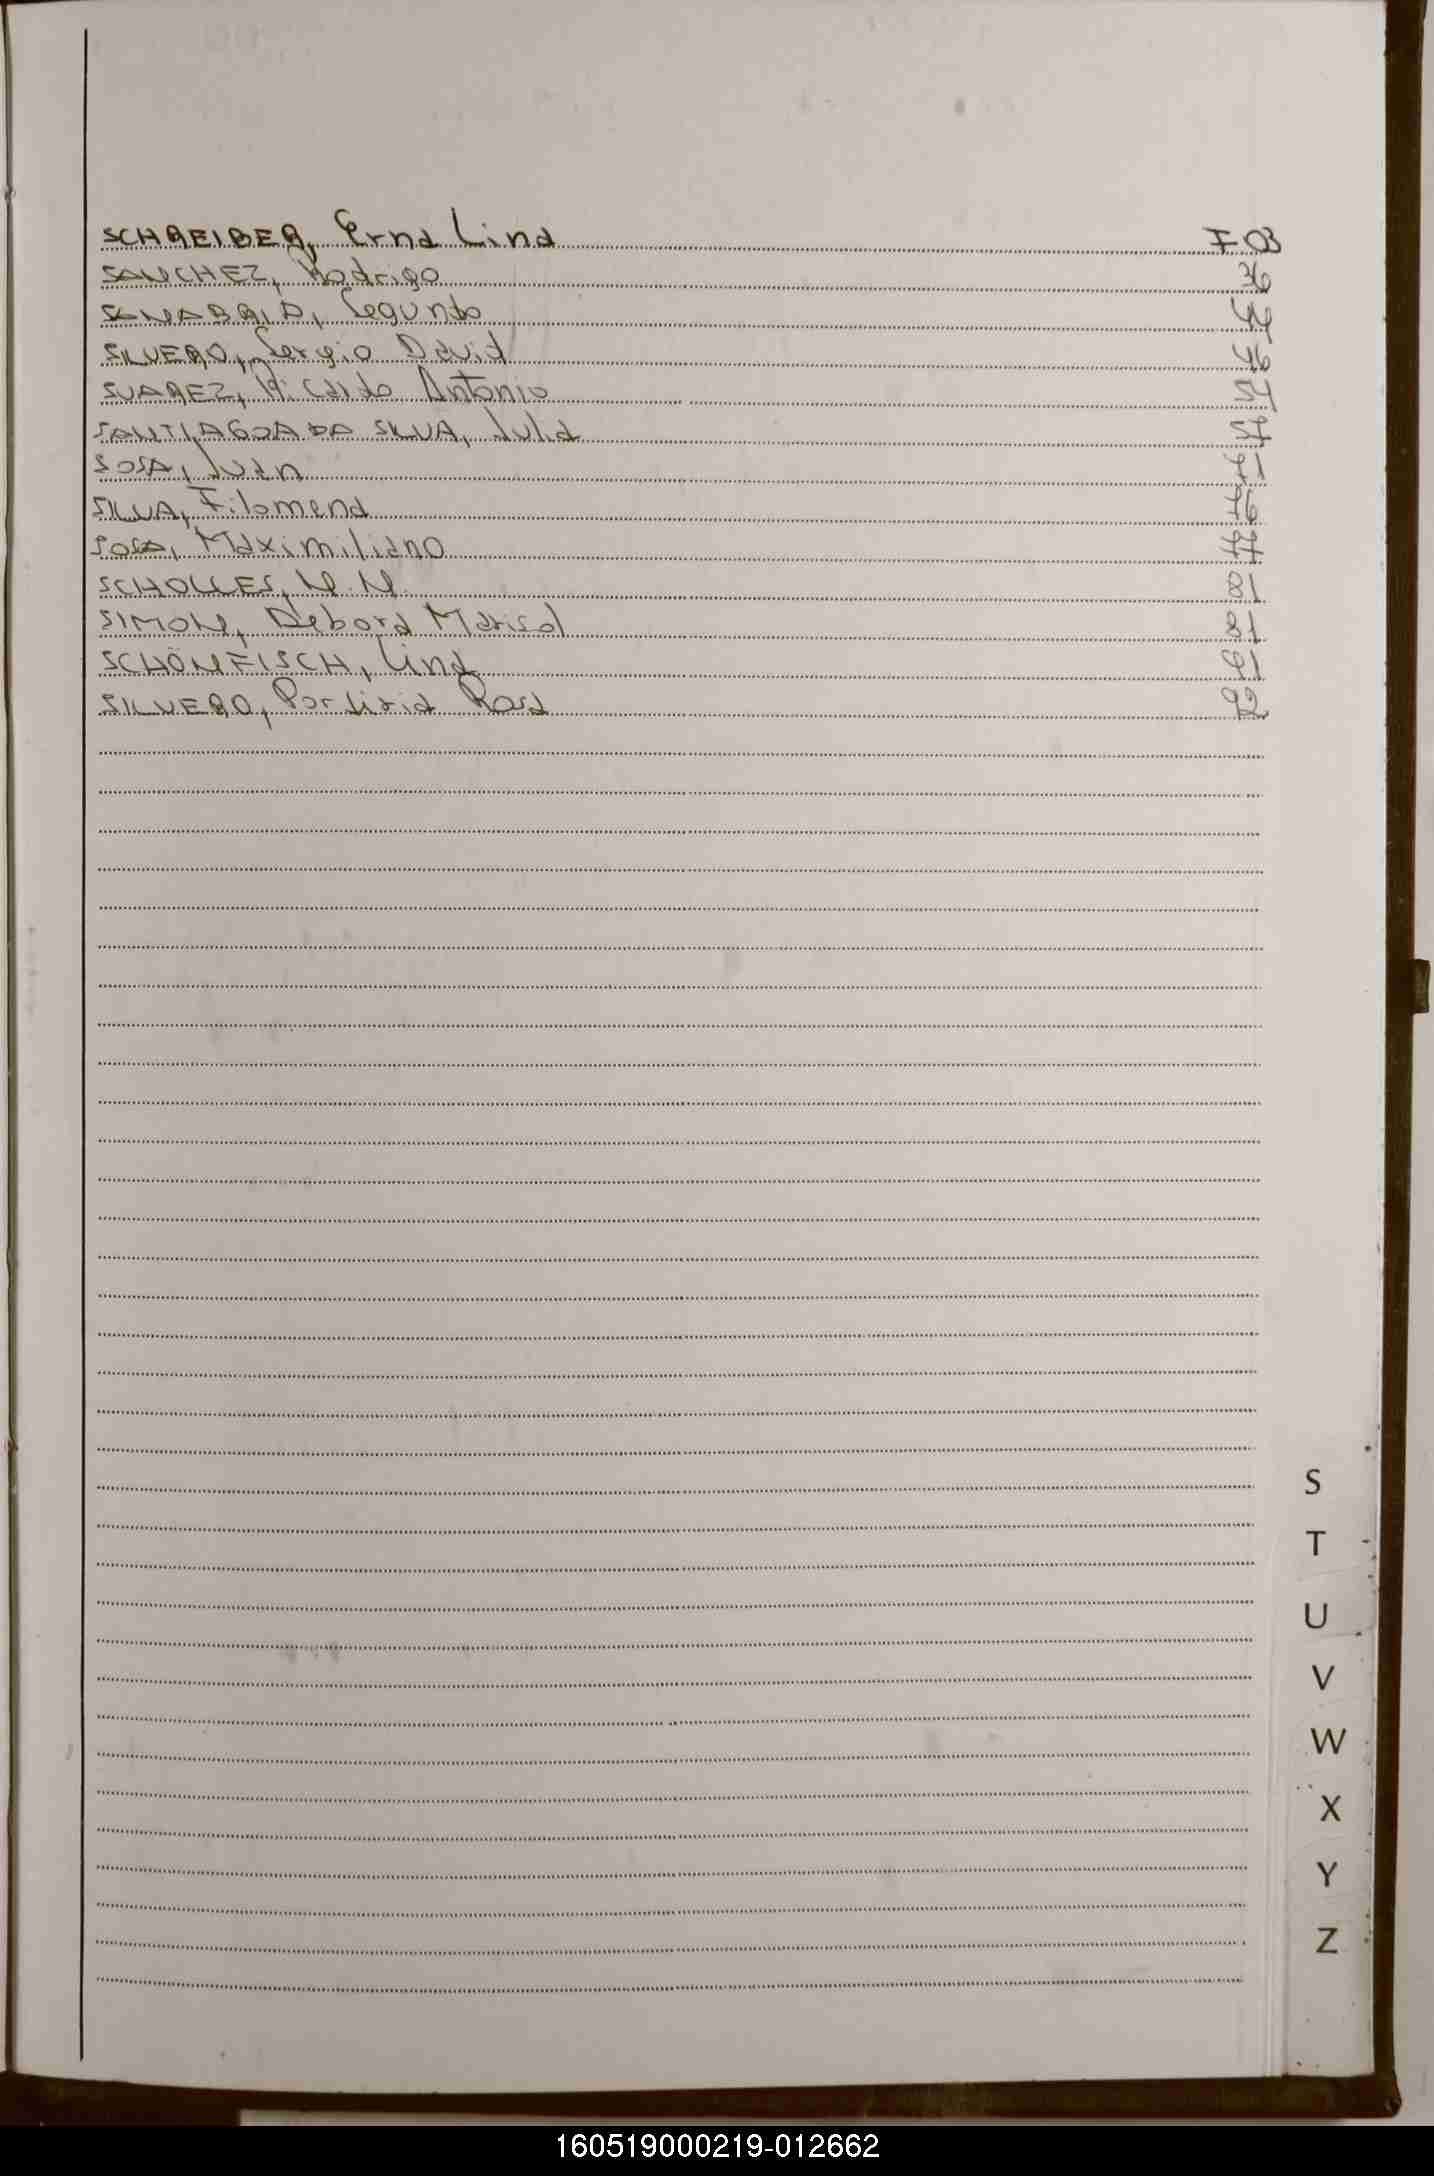 SCHREIBER, Erna Lina F 03
SANCHEZ, Rodrigo 36
SANABRIA, Segundo 44
SILVERO, Sergio David 46
SUAREZ, Ricardo Antonio 54
SANTIAGO DA SILVA, Julia 57
SOSA, Juan 71
SILVA, Filomena 76
SOSA, Maximiliano 77
SCHOLLES, N.N. 81
SIMON, Debora Marisol 81
SCHÖNFISCH, Lina 91
SILVERO, Porfiria Rosa 92
S
T
U
V
W
X
Y
Z
160519000219-012662